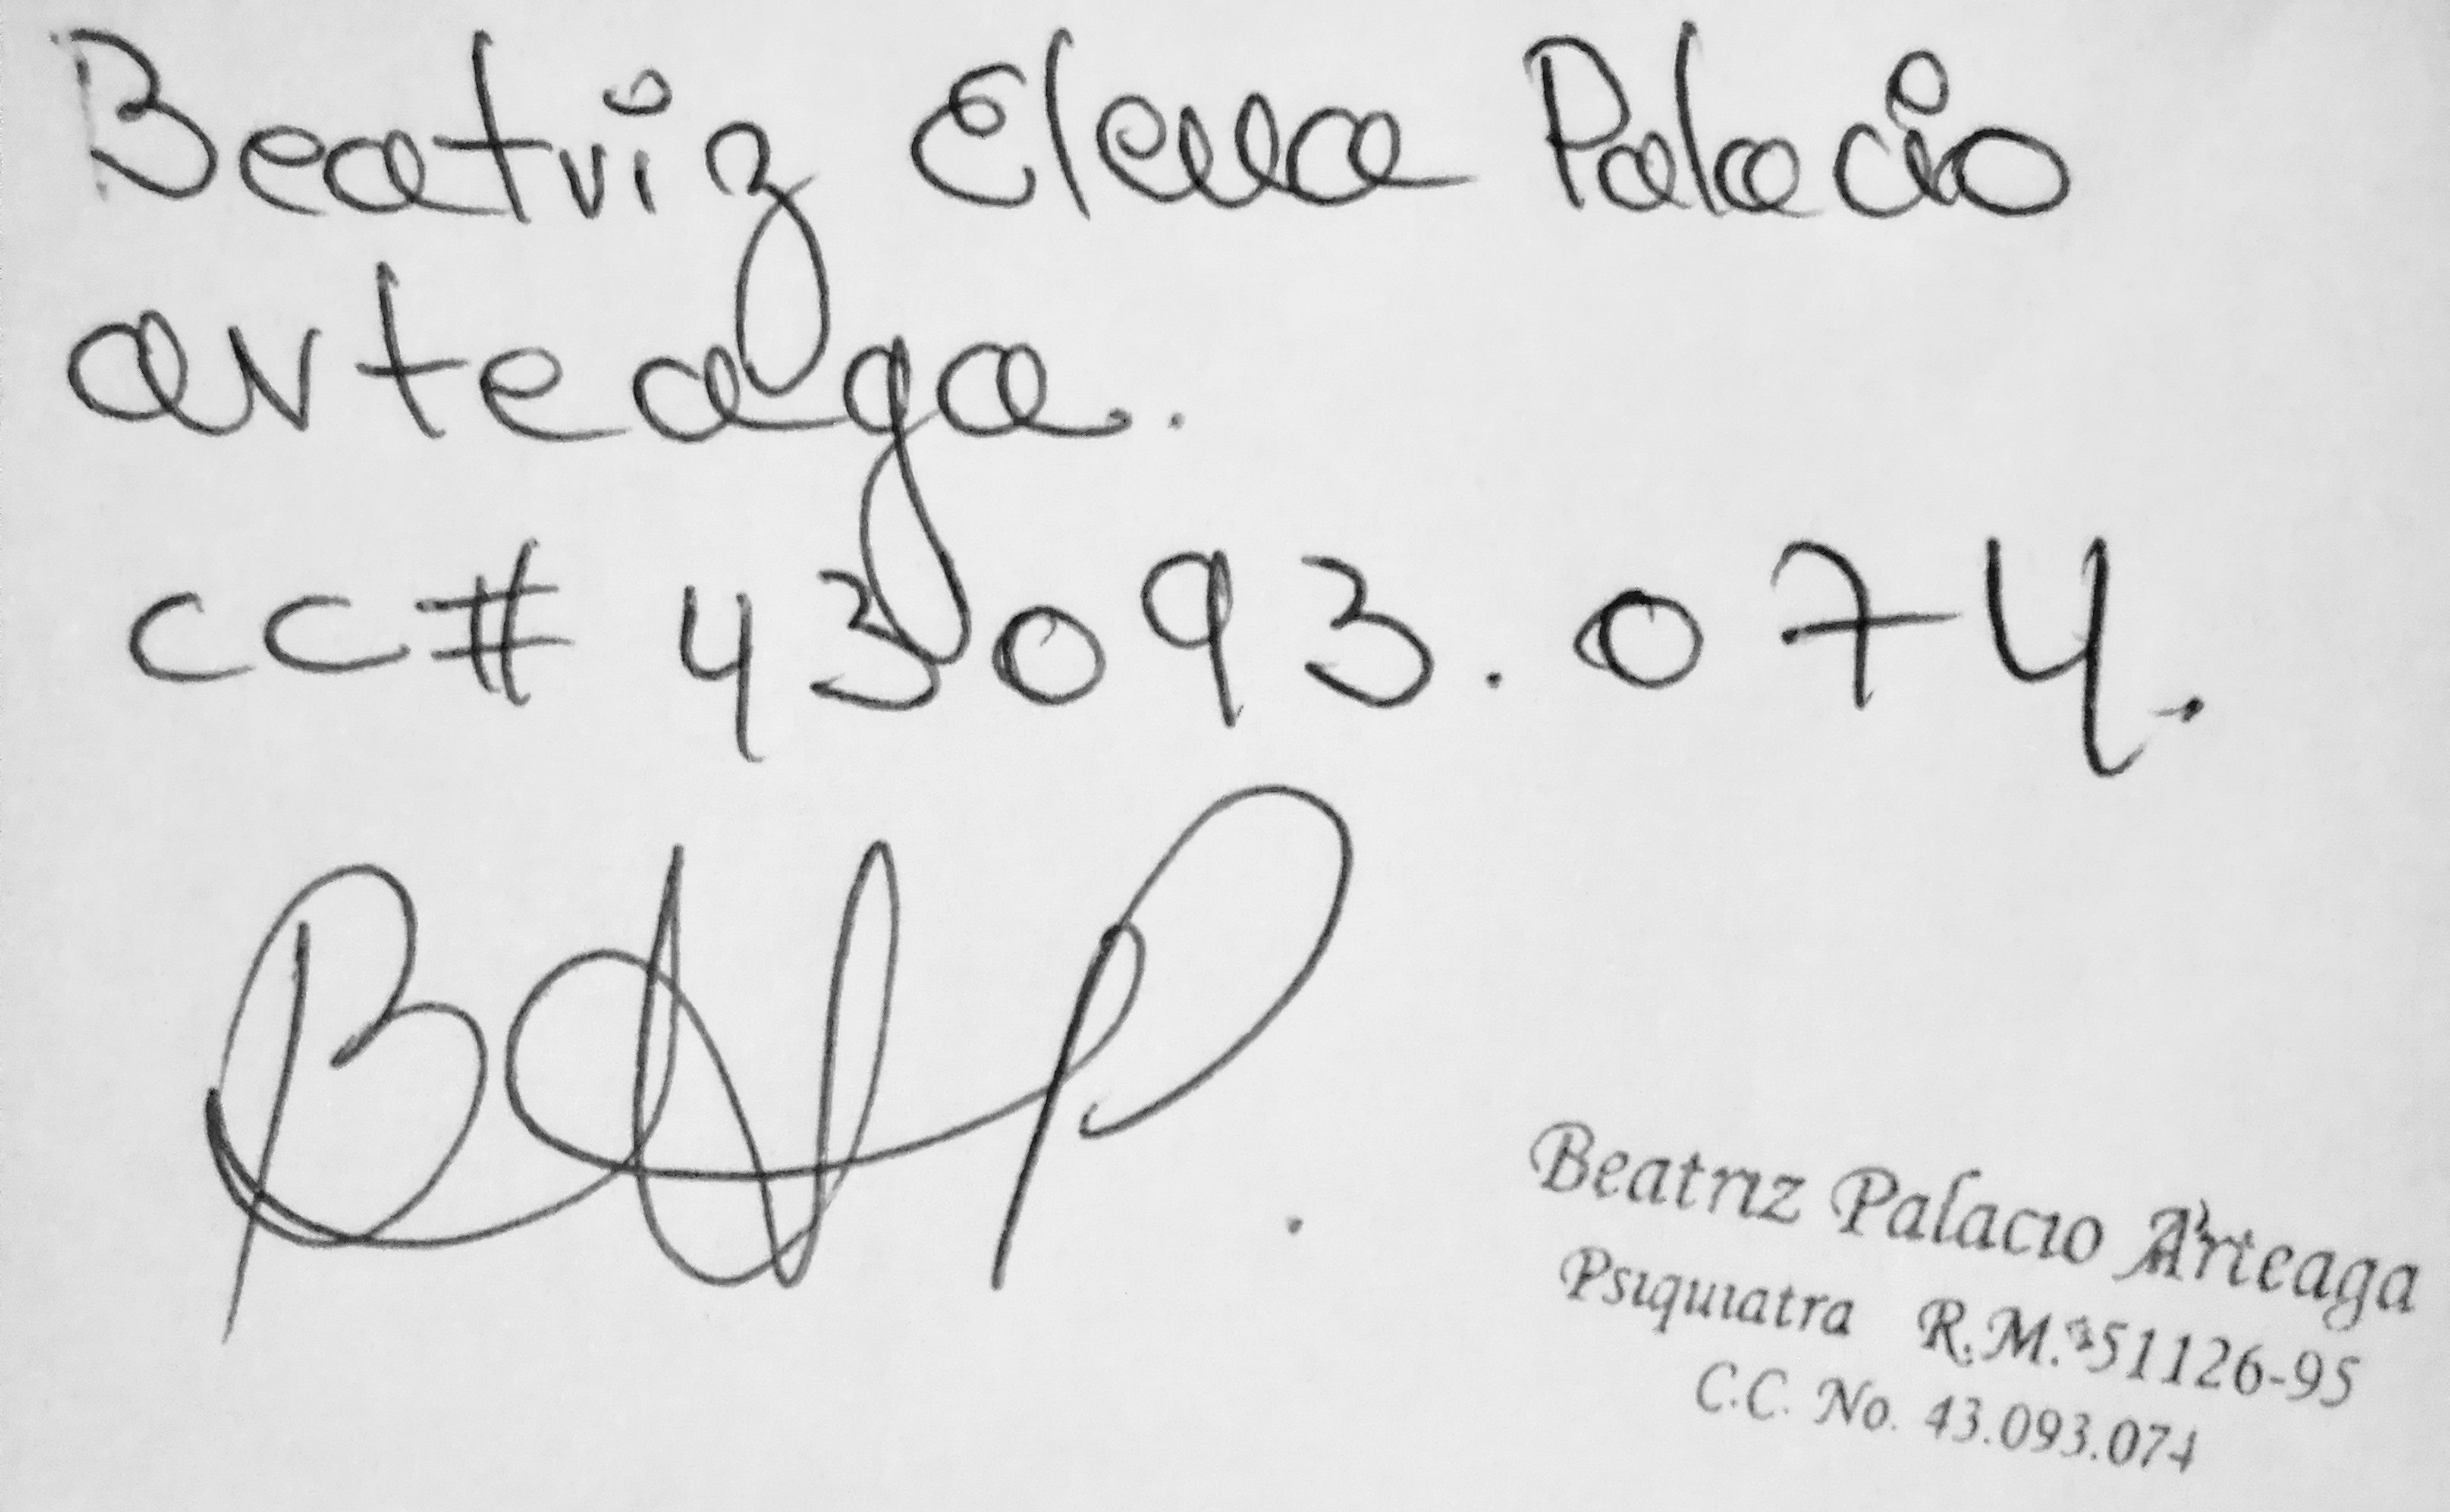 Beatriz Elena Palacio
arteaga.
CC# 43093.074.
Beatriz Palacio Arteaga
Psiquiatra R.M. 51126-95
C.C. No. 43.093.074